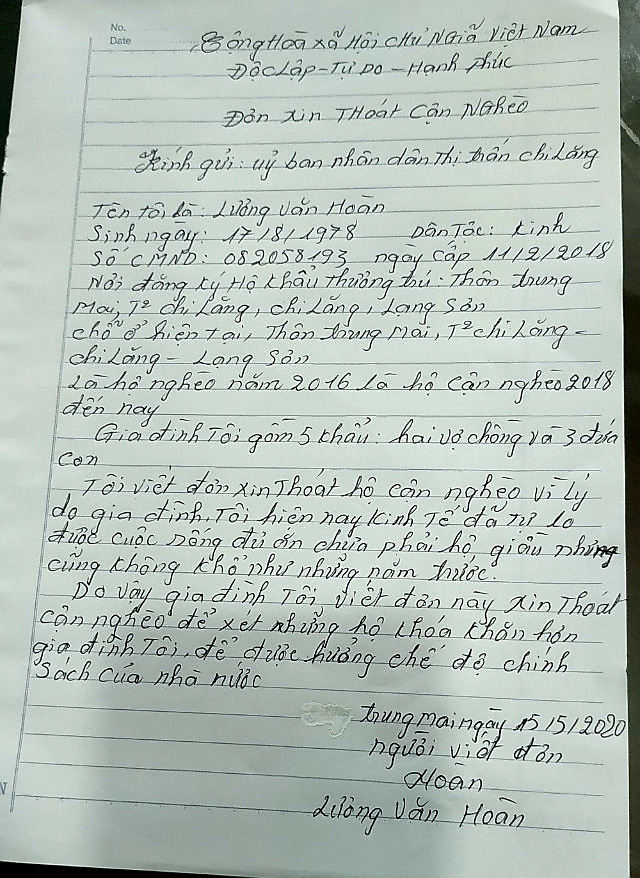 No.
Date
Cộng Hoà xã Hội chủ Nghĩa Việt Nam
Độc Lập - Tự Do - Hạnh phúc
Đơn xin Thoát Cận Nghèo
Kính gửi: uỷ ban nhân dân Thị trấn chi Lăng
Tên tôi là: Lương Văn Hoàn
Sinh ngày: 17/8/1978 Dân Tộc: Kinh
Số CMND: 082058193 ngày cấp 11/2/2018
Nơi đăng ký Hộ Khẩu Thường trú: Thôn trung
Mai, T² chi Lăng, chi Lăng, Lạng Sơn
chỗ ở hiện tại, Thôn trung Mai, T² chi Lăng -
chi Lăng - Lạng Sơn
Là hộ nghèo năm 2016 là hộ cận nghèo 2018
đến nay
Gia đình Tôi gồm 5 khẩu: hai vợ chồng và 3 đứa
con
Tôi viết đơn xin Thoát hộ cân nghèo vì lý
do gia đình, Tôi hiện nay Kinh Tế đã tự lo
được cuộc sông đủ ăn chưa phải hộ, giầu nhưng
cũng không khổ như những năm trước.
Do vậy gia đình Tôi, viết đơn này xin Thoát
cận nghèo để xét những hộ khóa khăn hơn
gia đình Tôi, để được hưởng chế độ chính
sách của nhà nước
trung mai ngày 15/5/2020
người viết đơn
Hoàn
Lương Văn Hoàn